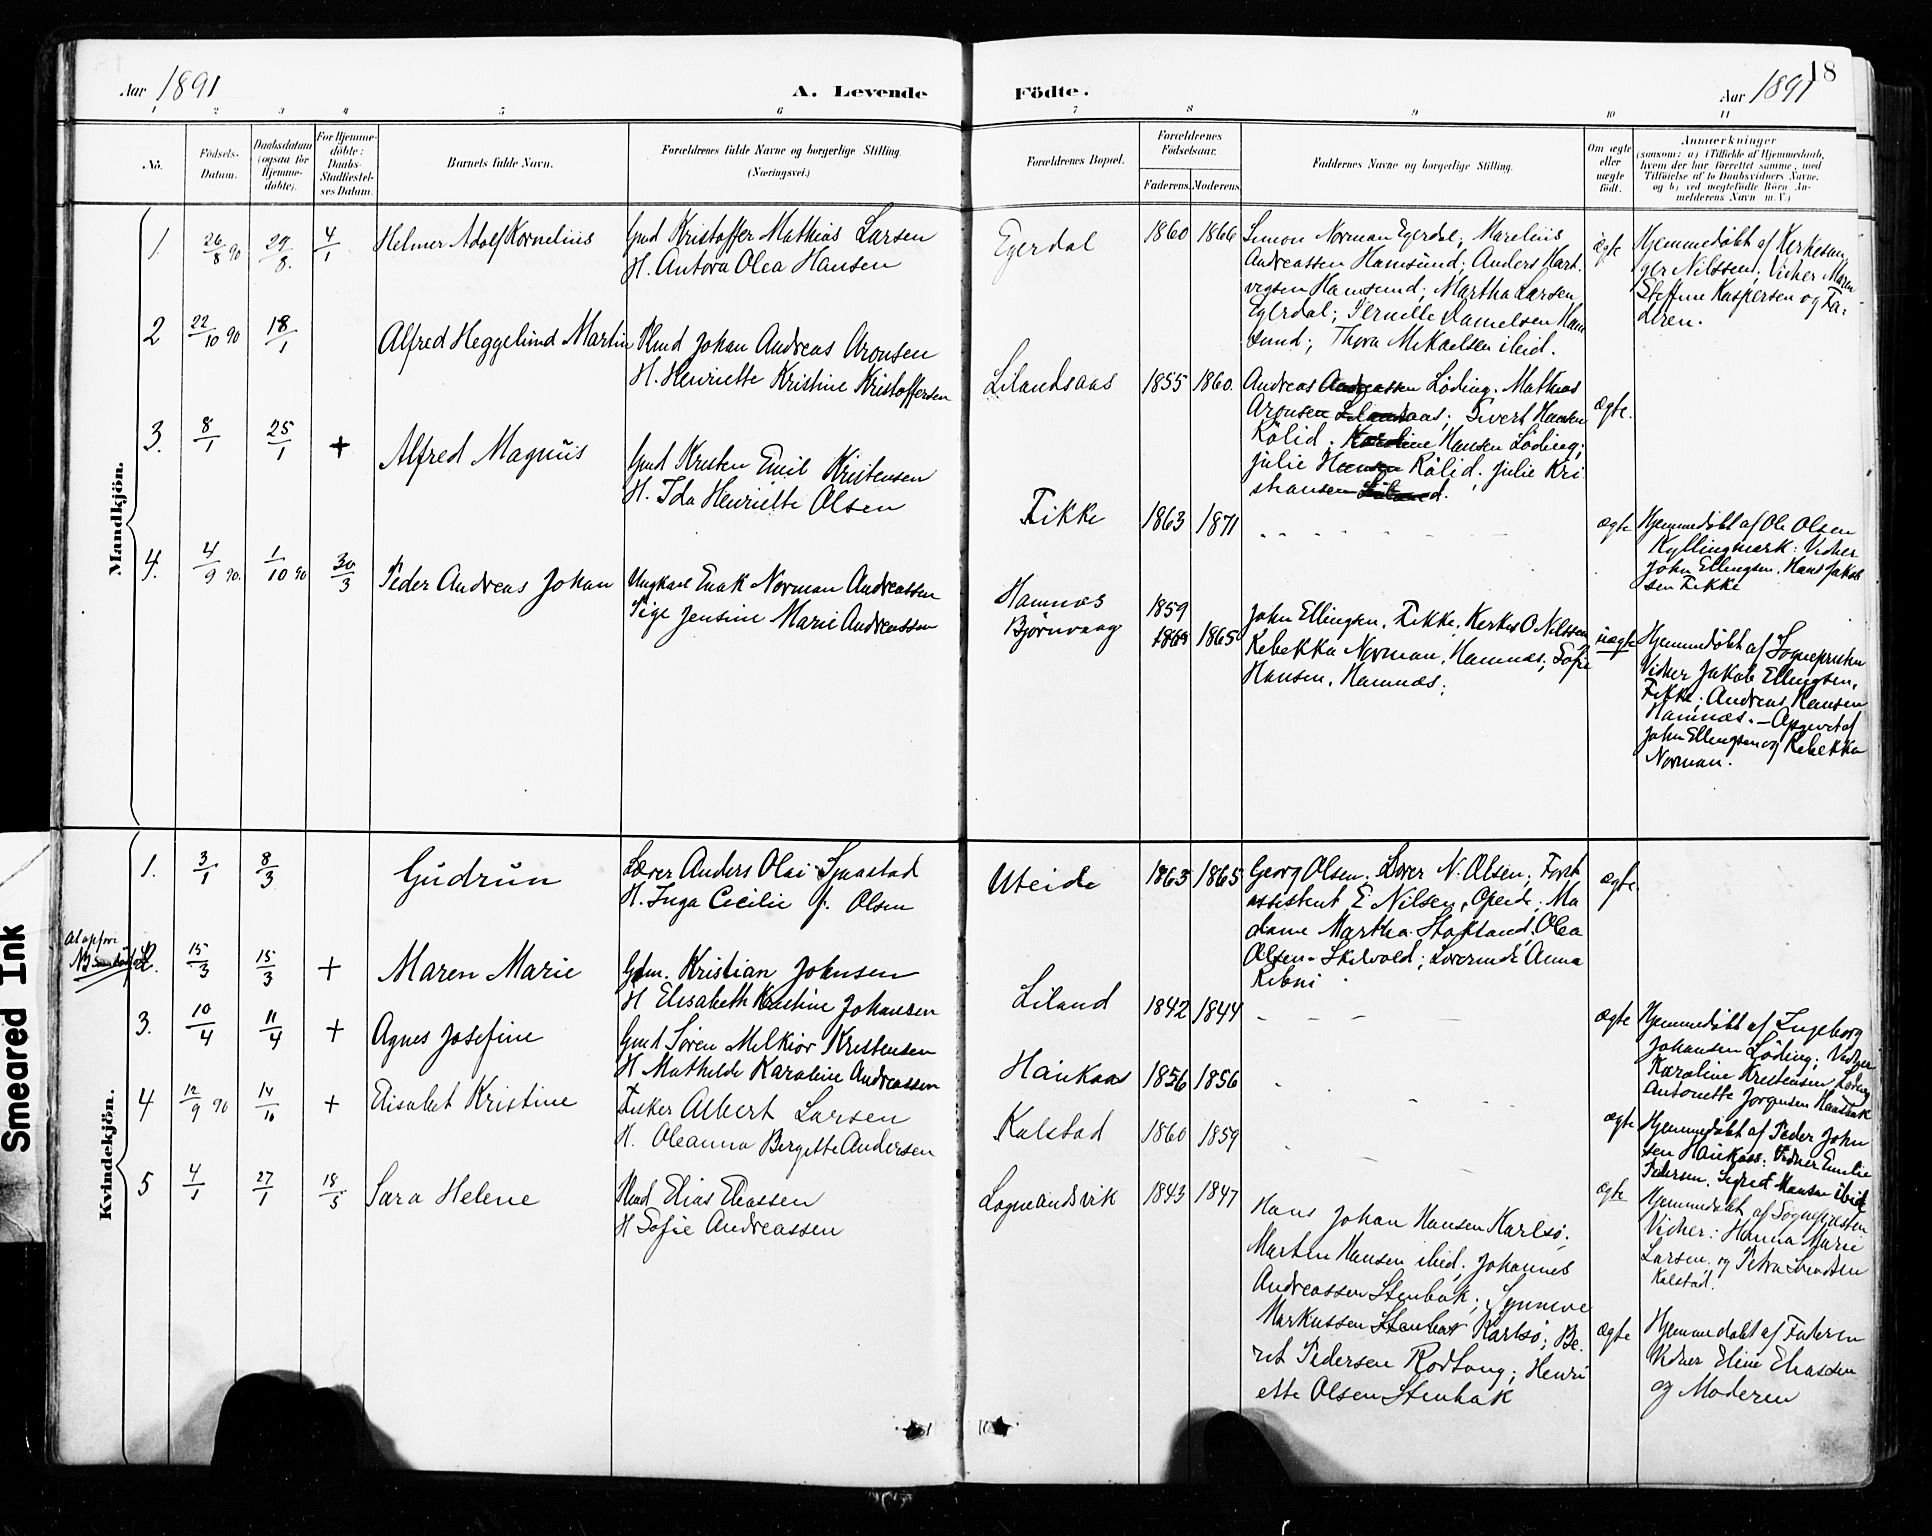 18
Aar 1891
A. Levende
Födte.
Aar 1891
1 2 3 4 5 6 7 8 9 10 11
No.
Födsels-
Datum.
Daabsdatum
(ogsaa for
Hjemme-
döbte).
For Hjemme-
döbte:
Daabs-
Stadfæstel-
ses Datum.
Barnets fulde Navn.
Forældrenes fulde Navne og borgerlige Stilling.
(Næringsvei.)
Forældrenes Bopæl.
Forældrenes
Födselsaar.
Faderens. Moderens.
Faddernes Navne og borgerlige Stilling.
Om ægte
eller
uægte
födt.
Anmærkninger
(saasom: a) i Tilfælde af Hjemmedaab,
hvem der har forrettet samme, med
Tilföielse af to Daabsvidners Navne,
og b) ved uægtefödte Börn An-
melderens Navn m.V.)
Mandkjön.
1. 26/8 90 29/8. 4/1 Helmer Adolf Kornelius
Gmd Kristoffer Mathias Larsen
H. Antora Olea Hansen
Egerdal 1860 1866
Simon Norman Egerdal; Marelius
Andreassen Hamsund; Anders Hart
vigsen Hamsund; Martha Larsen
Egerdal; Pernille Danielsen Ham
sund; Thora Mikaelsen ibid.
ægte
Hjemmedøbt af Kirkesan
ger Nilssen; Vidner Maren
Steffine Kaspersen og Fa-
deren.
2 22/10 90 18/1 Alfred Heggelund Martin
Hmd Johan Andreas Aronsen
H. Henriette Kristine Kristoffersen
Lilandsaas 1855 1860.
Andreas Andreassen Løding. Mathias
Aronsen Lilandsaas; Sivert Hansen
Rölid. Karoline Hansen Löding;
Julie Hansen Rölid; Julie Kri
stiansen Liland.
ægte.
3. 8/1 25/1 + Alfred Magnus
Gmd Kristen Emil Kristensen
H. Ida Henriette Olsen
Fikke 1863 1871
ægte
Hjemmedøbt af Ole Olsen
Kyllingmark: Vidner
John Ellingsen, Hans Jakob
sen Fikke
4. 4/9 90. 1/10 90 30/3 Peder Andreas Johan
Ungkarl Enok Norman Andreassen
Pige Jensine Marie Andreassen
Hamnæs 1859
Bjørnvaag 1869 1865
John Ellingsen, Fikke, Kirkes O Nilssen
Rebekka Norman, Hamnæs; Sofie
Hansen, Hamnæs;
uægte
Hjemmedøbt af Sognepresten
Vidner Jakob Ellingsen,
Fikke; Andreas Hansen
Hamnæs. — Opgivet af
John Ellingsen og Rebekka
Norman.
Kvindekjön.
1. 3/1 8/3 Gudrun
Lærer Anders Olai Sjaastad
H. Inga Cecilie f. Olsen
Uteide 1863 1865
Georg Olsen. Lærer N. Olsen; Forst
assistent E Nilsen, Opeid; Ma
dame Martha Stofland; Olea
Olsen. Skilvold; Lærerinde Anna
Ribni
ægte
2. 15/3 15/3 + Maren Marie
Gdm. Kristian Johnsen
H Elisabeth Kristine Johansen
Liland 1842 1844
ægte
Hjemmedøbt af Ingeborg
Johansen Löding; Vidner
Karoline Kristensen Löding
Antonette Jörgensen
3. 10/4 11/4 + Agnes Josefine
Gmd Sören Melkior Kristensen
H Mathilde Karoline Andreassen
Haukaas 1856 1856
ægte
Hjemmedøbt af Peder John
sen Haukaas. Vidner Emilie
Pedersen, Sigrid Hansen ibid
4 12/9 90 14/10 + Elisabet Kristine
Fisker Albert Larsen
H. Oleanna Bergette Andersen
Kalstad 1860 1859
ægte
Hjemmedøbt af Sognepresten
Vidner: Hanna Marie
Larsen, og Petra Svendsen
Kalstad.
5 4/1 27/1 18/5 Sara Helene
Hmd Elias Eliassen
H Sofie Andreassen
Sogneandsvik 1843 1847
Hans Johan Hansen Karlsö;
Martin Hansen ibid; Johannes
Andreassen Stenbak; Synneve
Markussen Stenbak Karlsö; Be-
rit Pedersen Rodtang; Henri
ette Olsen Stenbak
ægte
Hjemmedøbt af Faderen
Vidner Eline Eliassen
og Moderen
Smeared Ink